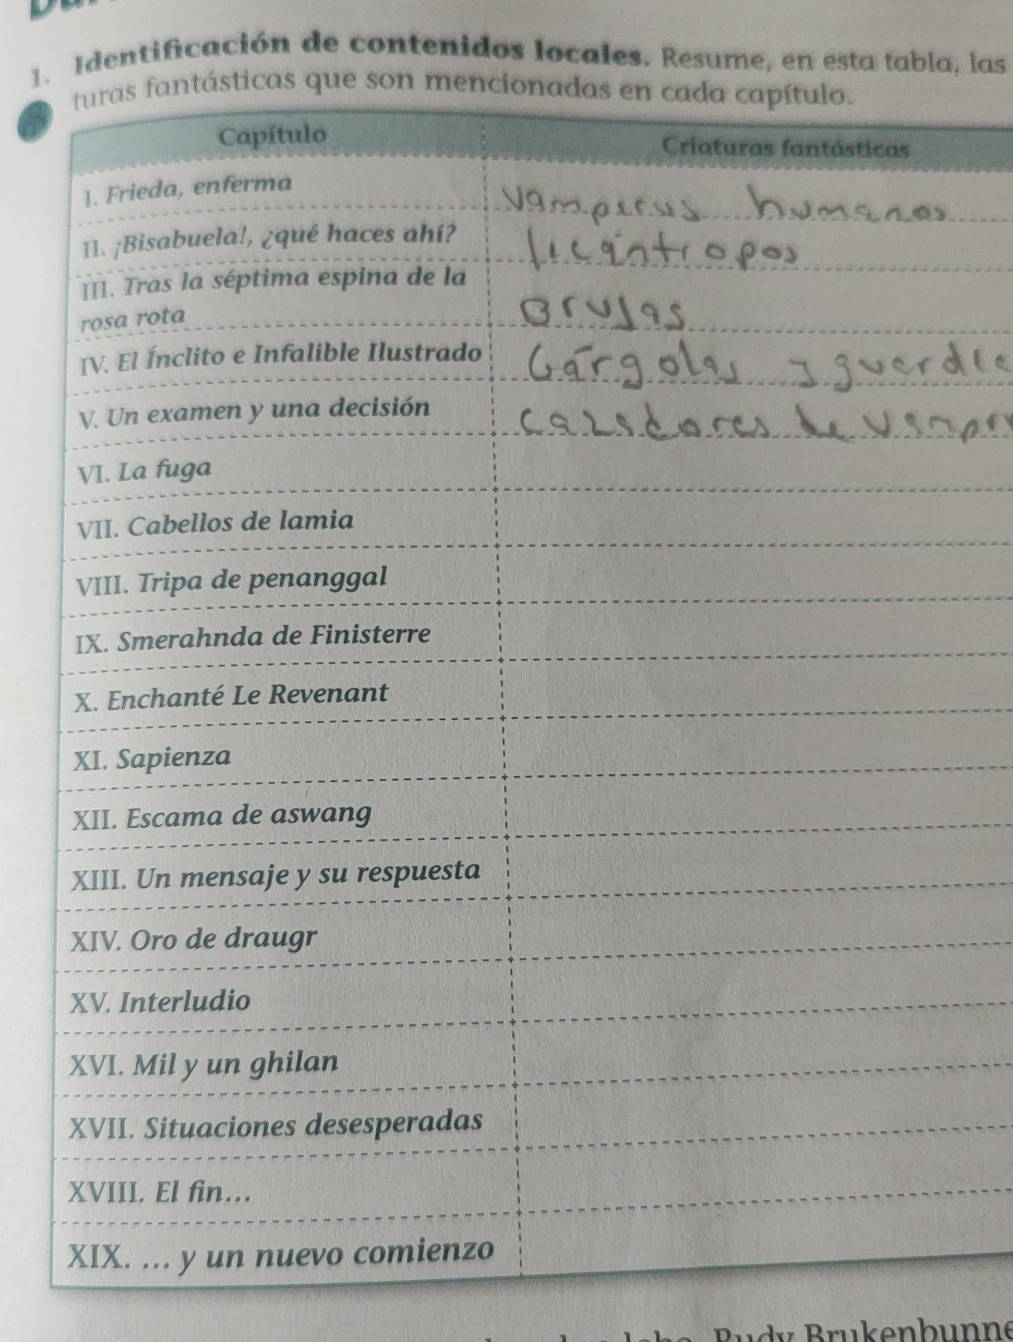 1. Identificación de contenidos locales. Resume, en esta tabla, las
turas fantásticas que son mencionadas en cada capítulo.
Capítulo Criaturas fantásticas
I. Frieda, enferma vampirus humanos
II. ¡Bisabuela!, ¿qué haces ahí? licántropos
III. Tras la séptima espina de la
rosa rota Brujas
IV. El Ínclito e Infalible Ilustrado Gárgolas y guardia
V. Un examen y una decisión cazadores de vampir
VI. La fuga
VII. Cabellos de lamia
VIII. Tripa de penanggal
IX. Smerahnda de Finisterre
X. Enchanté Le Revenant
XI. Sapienza
XII. Escama de aswang
XIII. Un mensaje y su respuesta
XIV. Oro de draugr
XV. Interludio
XVI. Mil y un ghilan
XVII. Situaciones desesperadas
XVIII. El fin...
XIX. ... y un nuevo comienzo
Rudy Brukenbunne